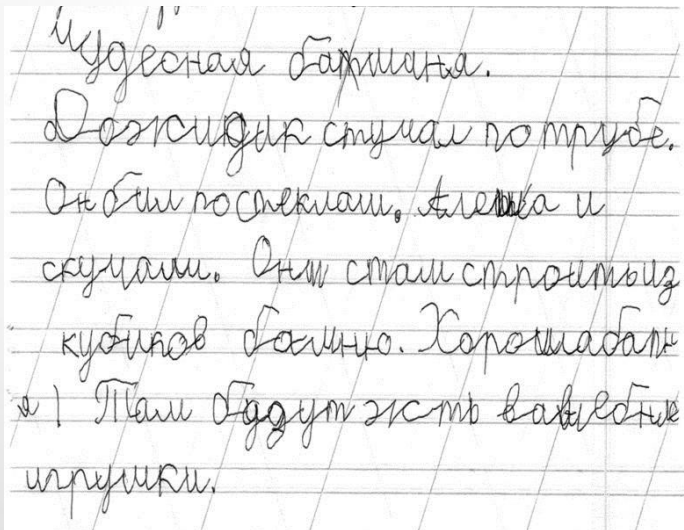 Чудесная баршаня.
Дожидик стучал по трубе.
Он бил по стеклам. Алешка и
скучали. Они стали строить из
кубиков башню. Хороша баш
я! Там будут жть вавлебние
игрушки.